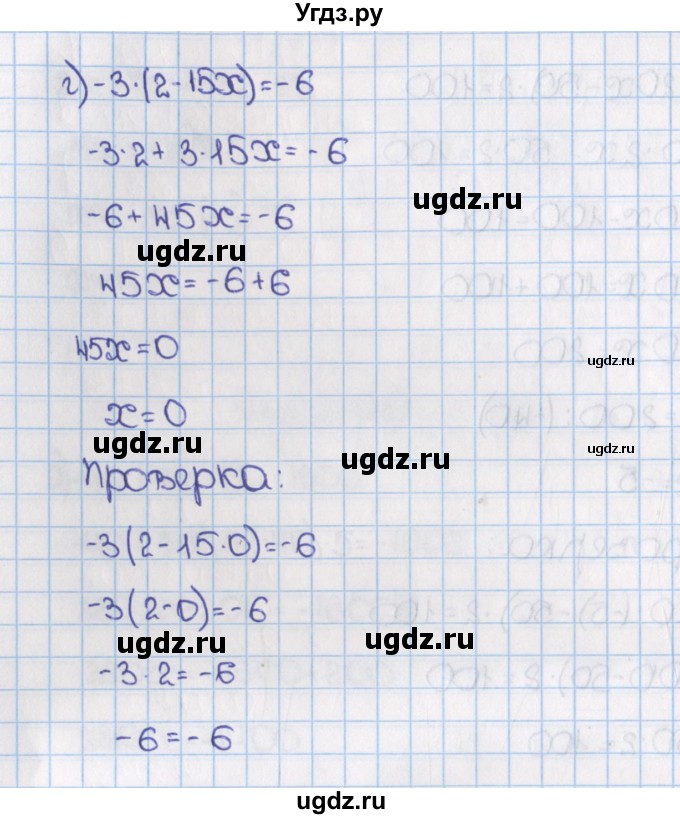 Угдз.ру
г) -3·(2-15x)=-6
-3·2+3·15x=-6
ugdz.ru
-6+45x=-6
ugdz.ru
45x=-6+6
45x=0
ugdz.ru
x=0
ugdz.ru
ugdz.ru
ugdz.ru
Проверка:
-3(2-15·0)=-6
-3(2-0)=-6
ugdz.ru
ugdz.ru
-3·2=-6
-6=-6
ugdz.ru